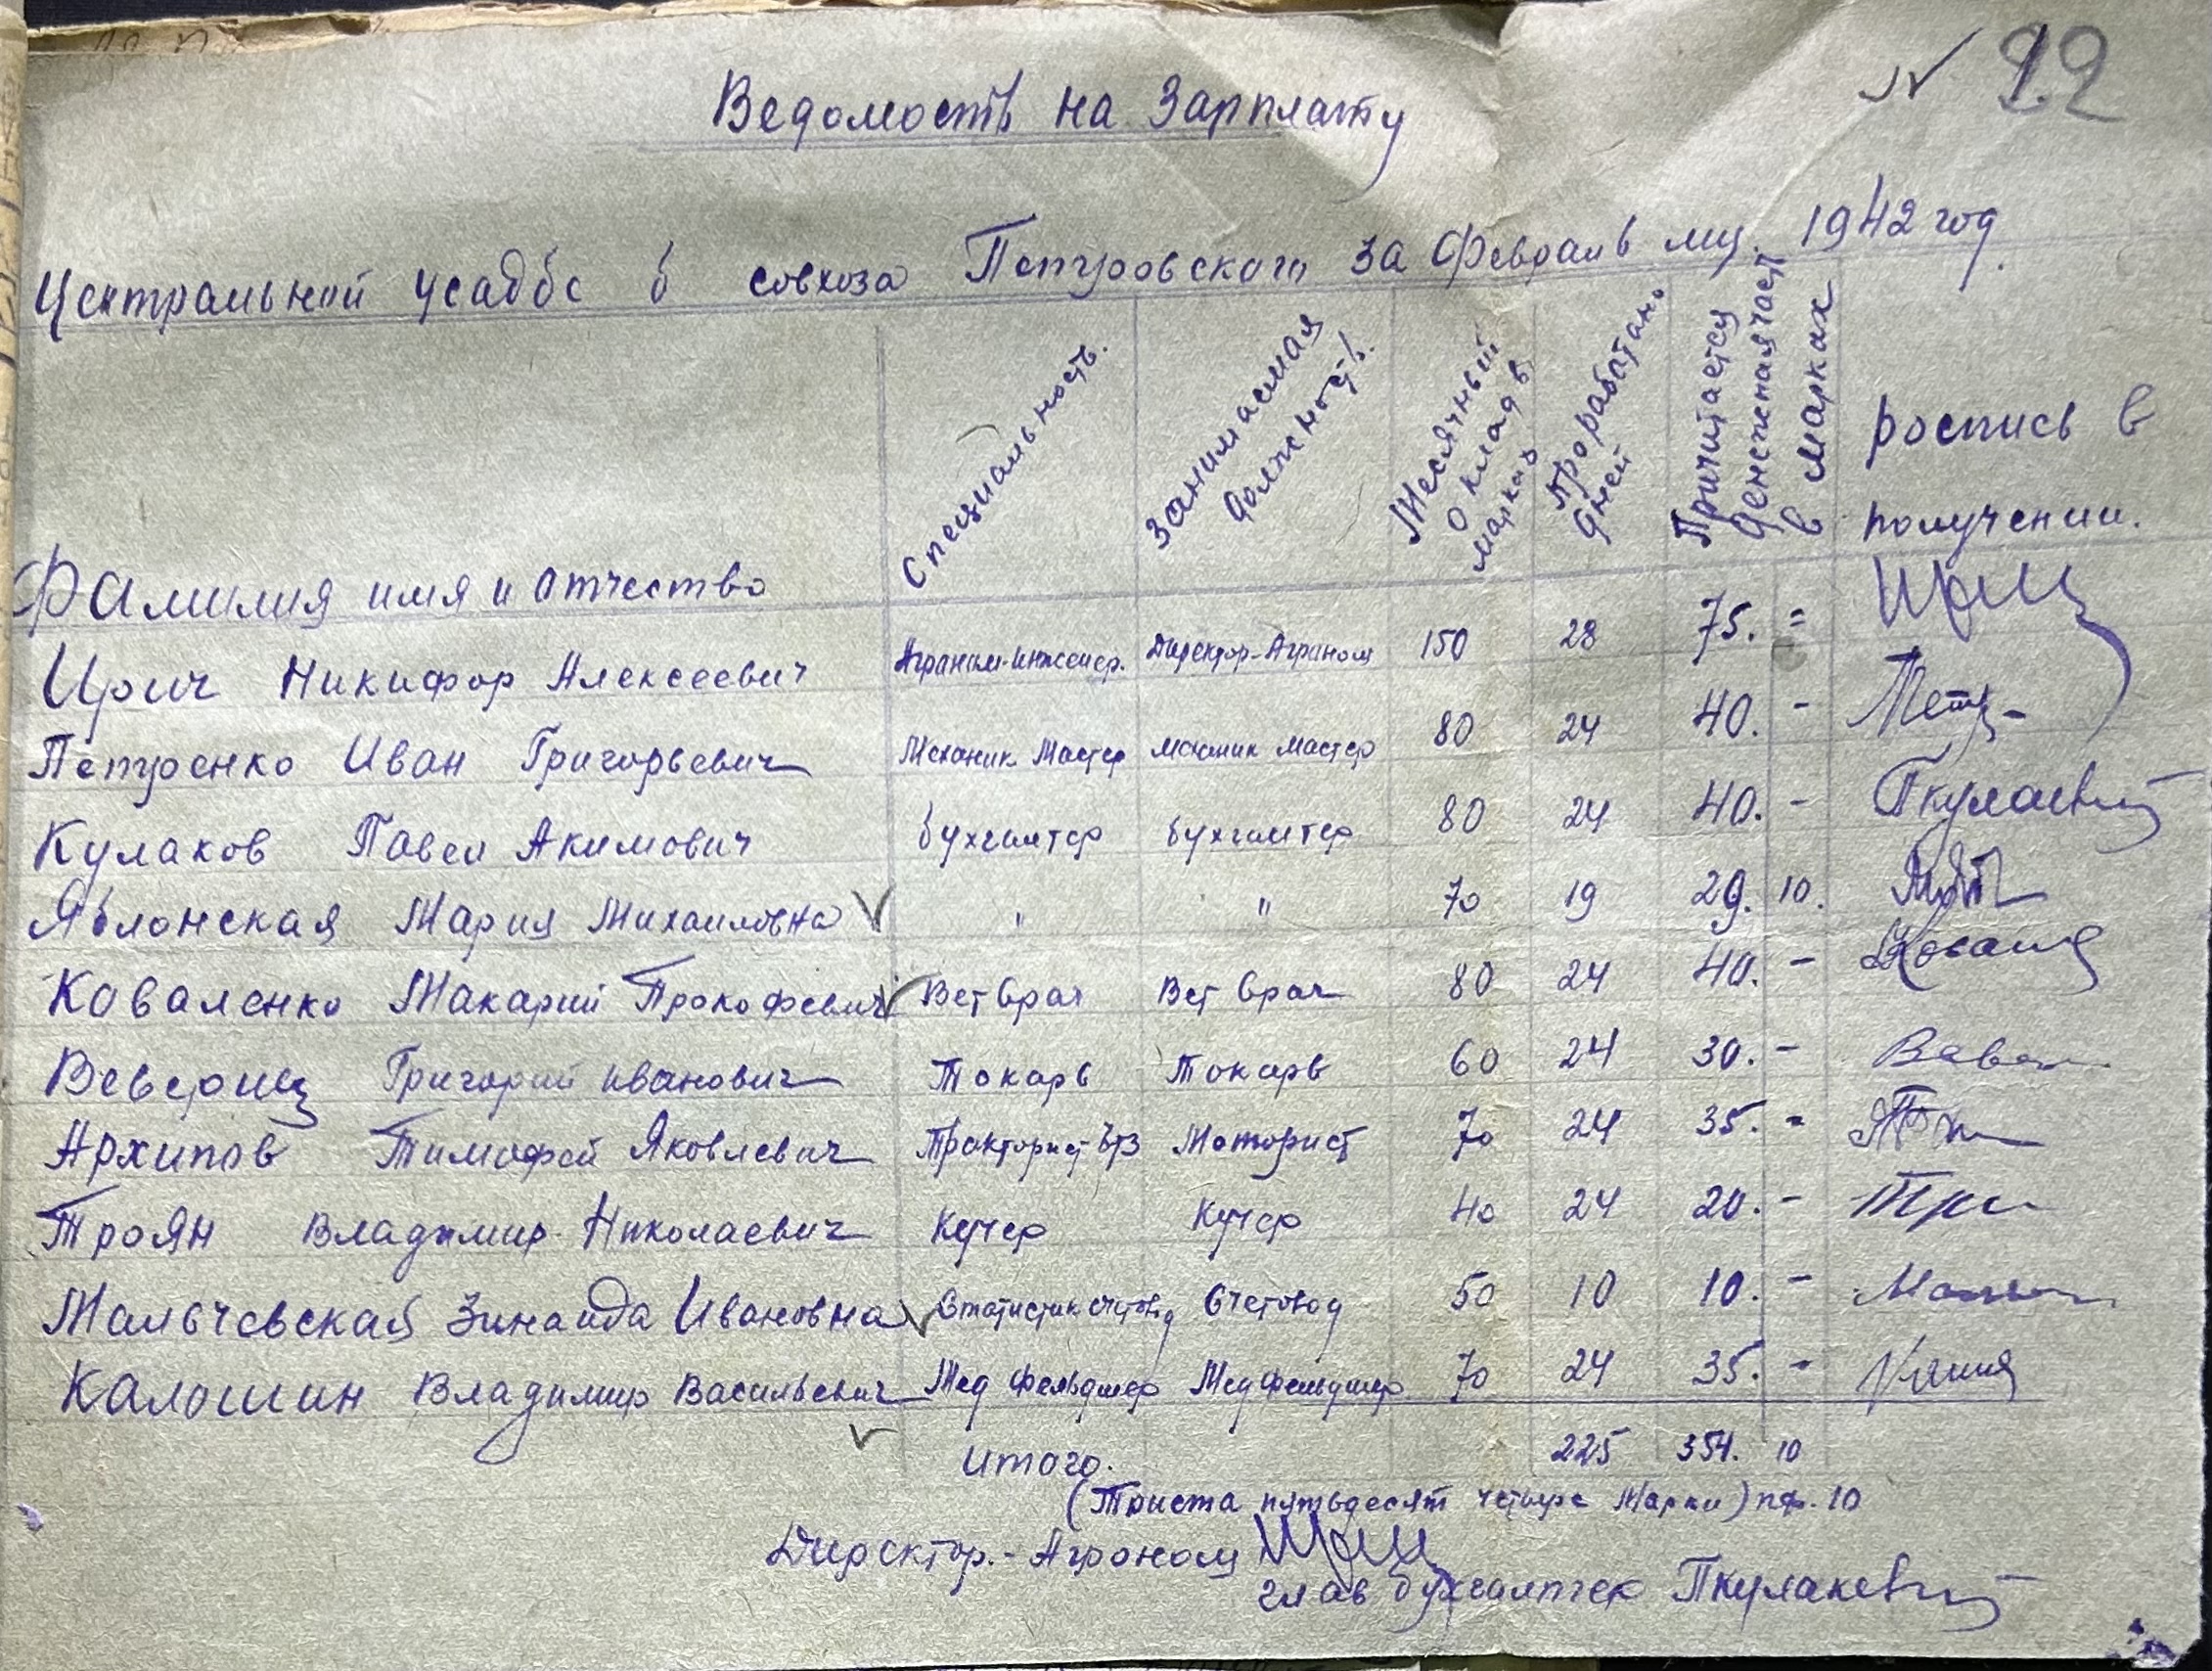 № 22
Ведомость на Зарплату
Центральной усадбе б совхоза Петуровского за Февраль мц. 1942 год.
Фамилия имя и отчество Специальность. Занимаемая должность. Месячный оклад в марках Проработано дней Причитается денежная част в марках роспись в получении.
Ирич Никифор Алексеевич Аграном-инженер. Директор-Аграном 150 28 75. =
Петуренко Иван Григорьевич Механик Мастер механик мастер 80 24 40. -
Кулаков Павел Акимович бухгалтер бухгалтер 80 24 40. -
Яблонская Мария Михаиловна " " 70 19 29. 10.
Коваленко Макарий Прокофевич Вет врач Вет врач 80 24 40. -
Веверец Григорий Иванович Токарь Токарь 60 24 30. -
Архипов Тимофей Яковлевич Тракторист ЧТЗ Моторист 70 24 35. -
Троян Владимир Николаевич Кучер Кучер 40 24 20. -
Мальчевская Зинаида Ивановна Статистик счетовод Счетовод 50 10 10. -
Калошин Владимир Васильевич Мед фельдшер Мед фельдшер 70 24 35. -
итого. 225 354. 10
(Триста пятьдесят четыре Марки) пф. 10
Директор.-Агроном
глав бухгалтер